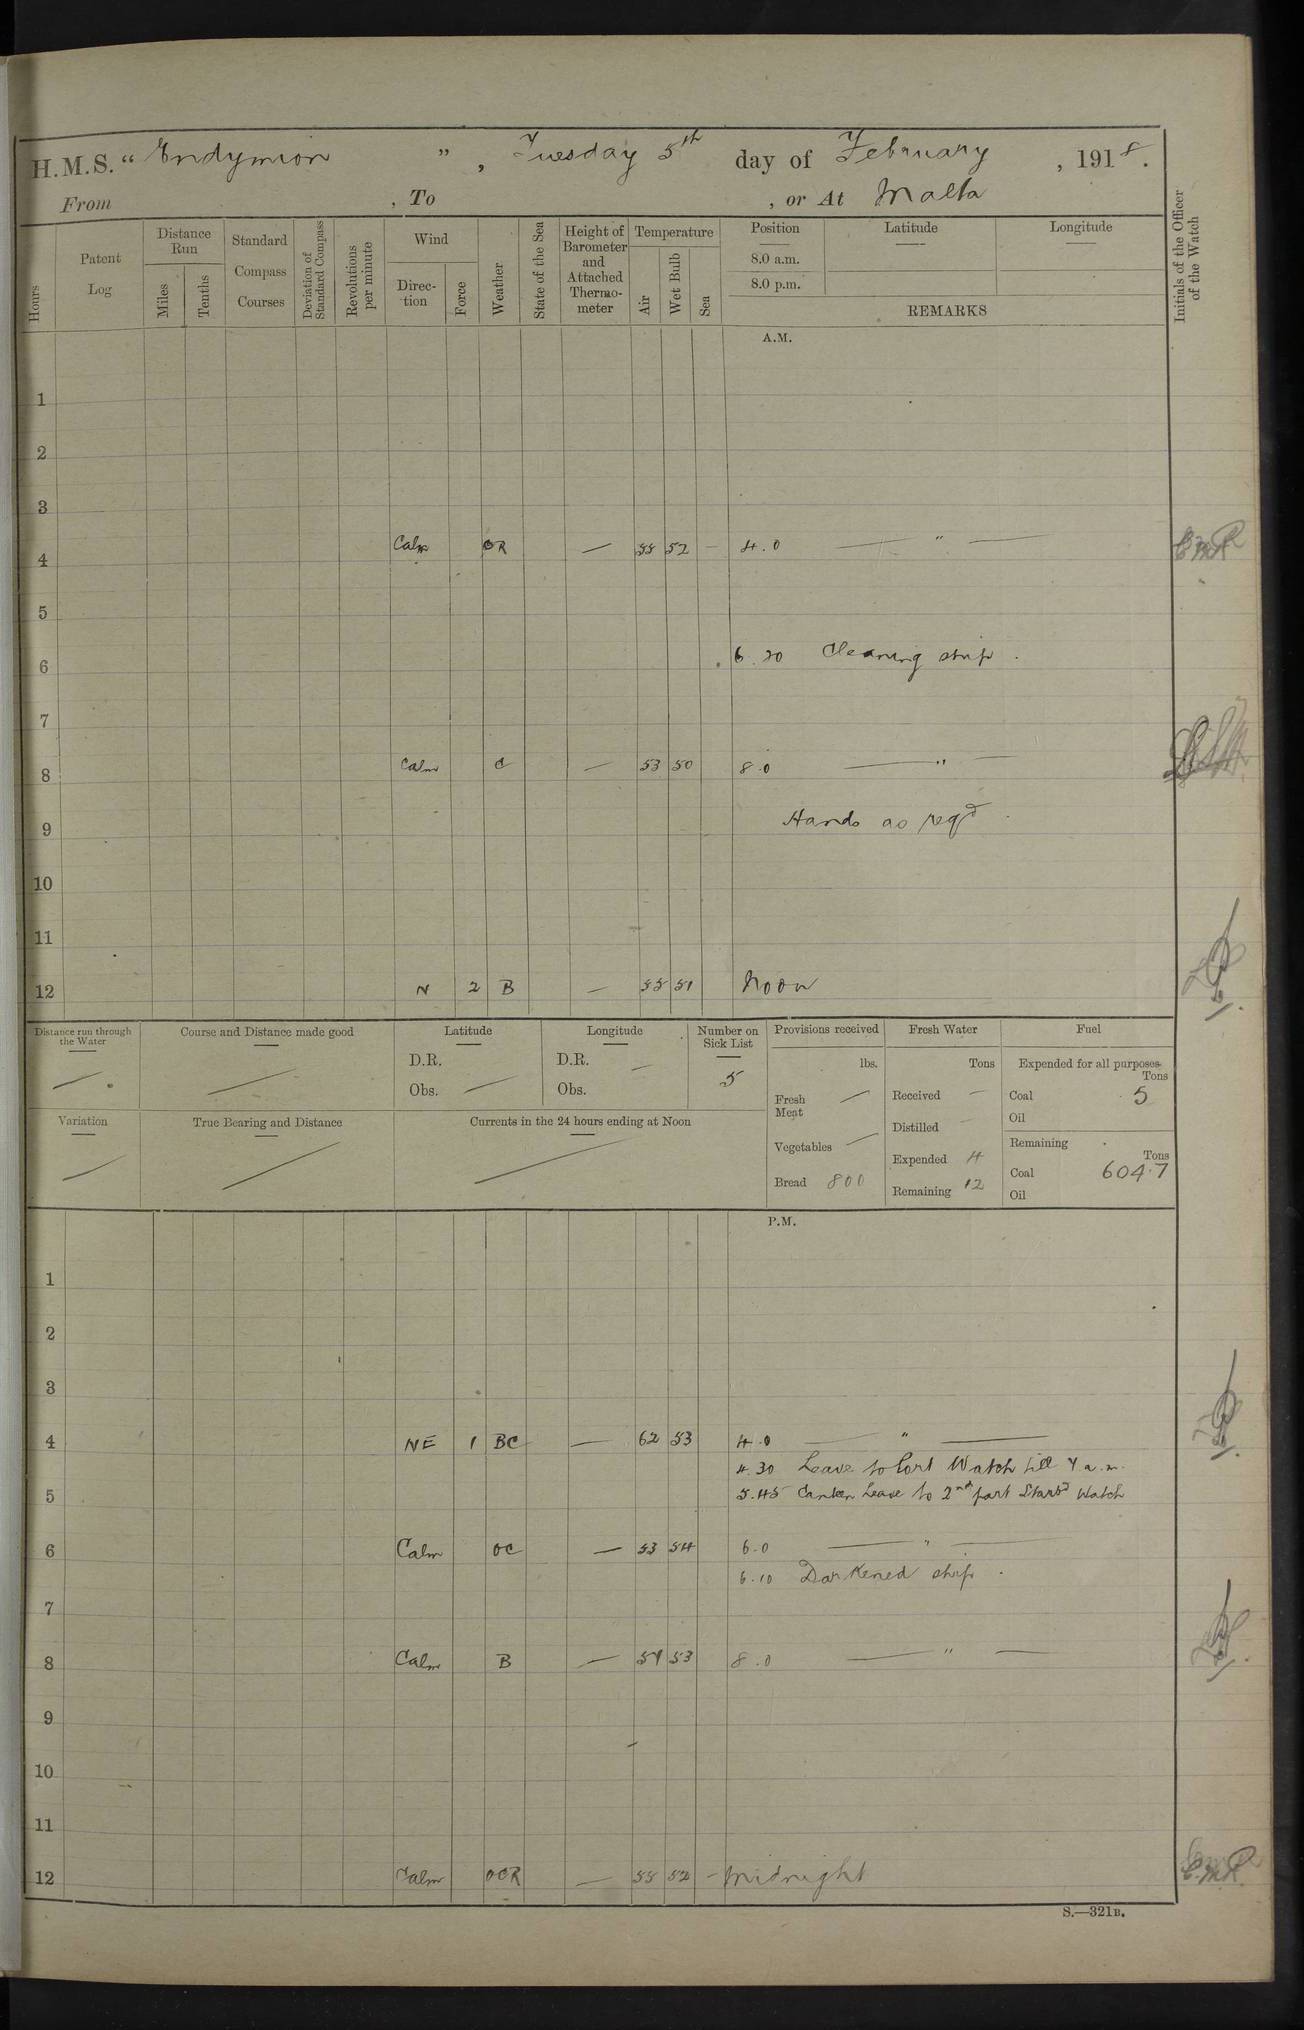 H.M.S. “ Endymion ” , Tuesday 5th day of February , 1918.
From , To , or At Malta
Hours
Patent Log
Distance Run
Miles
Tenths
Standard Compass Courses
Deviation of Standard Compass
Revolutions per minute
Wind
Direc-tion
Force
Weather
State of the Sea
Height of Barometer and Attached Thermo-meter
Temperature
Air
Wet Bulb
Sea
Position
8.0 a.m.
8.0 p.m.
Latitude
Longitude
REMARKS
Initials of the Officer of the Watch
A.M.
1
2
3
4 Calm OR — 55 52 - 4.0 — " —
5
6 6.20 Cleaning ship.
7
8 Calm C — 53 50 8.0 — " —
9 Hands as reqd.
10
11
12 N 2 B — 55 51 Noon
Distance run through the Water
Course and Distance made good
Latitude
D.R.
Obs.
Longitude
D.R. —
Obs.
Number on Sick List
5
Provisions received
lbs.
Fresh Meat
Vegetables
Bread 800
Fresh Water
Tons
Received —
Distilled —
Expended 4
Remaining 12
Fuel
Expended for all purposes
Tons
Coal 5
Oil
Remaining
Tons
Coal 604.7
Oil
Variation
True Bearing and Distance
Currents in the 24 hours ending at Noon
P.M.
1
2
3
4 NE 1 BC — 62 53 4.0 — " —
4.30 Leave to Port Watch till 7 a.m.
5 5.45 Canteen Leave to 2nd part Starbd Watch
6 Calm OC — 53 54 6.0 — " —
6.10 Darkened ship.
7
8 Calm B — 54 53 8.0 — " —
9
10
11
12 Calm OCR — 55 52 - Midnight
S.—321B.